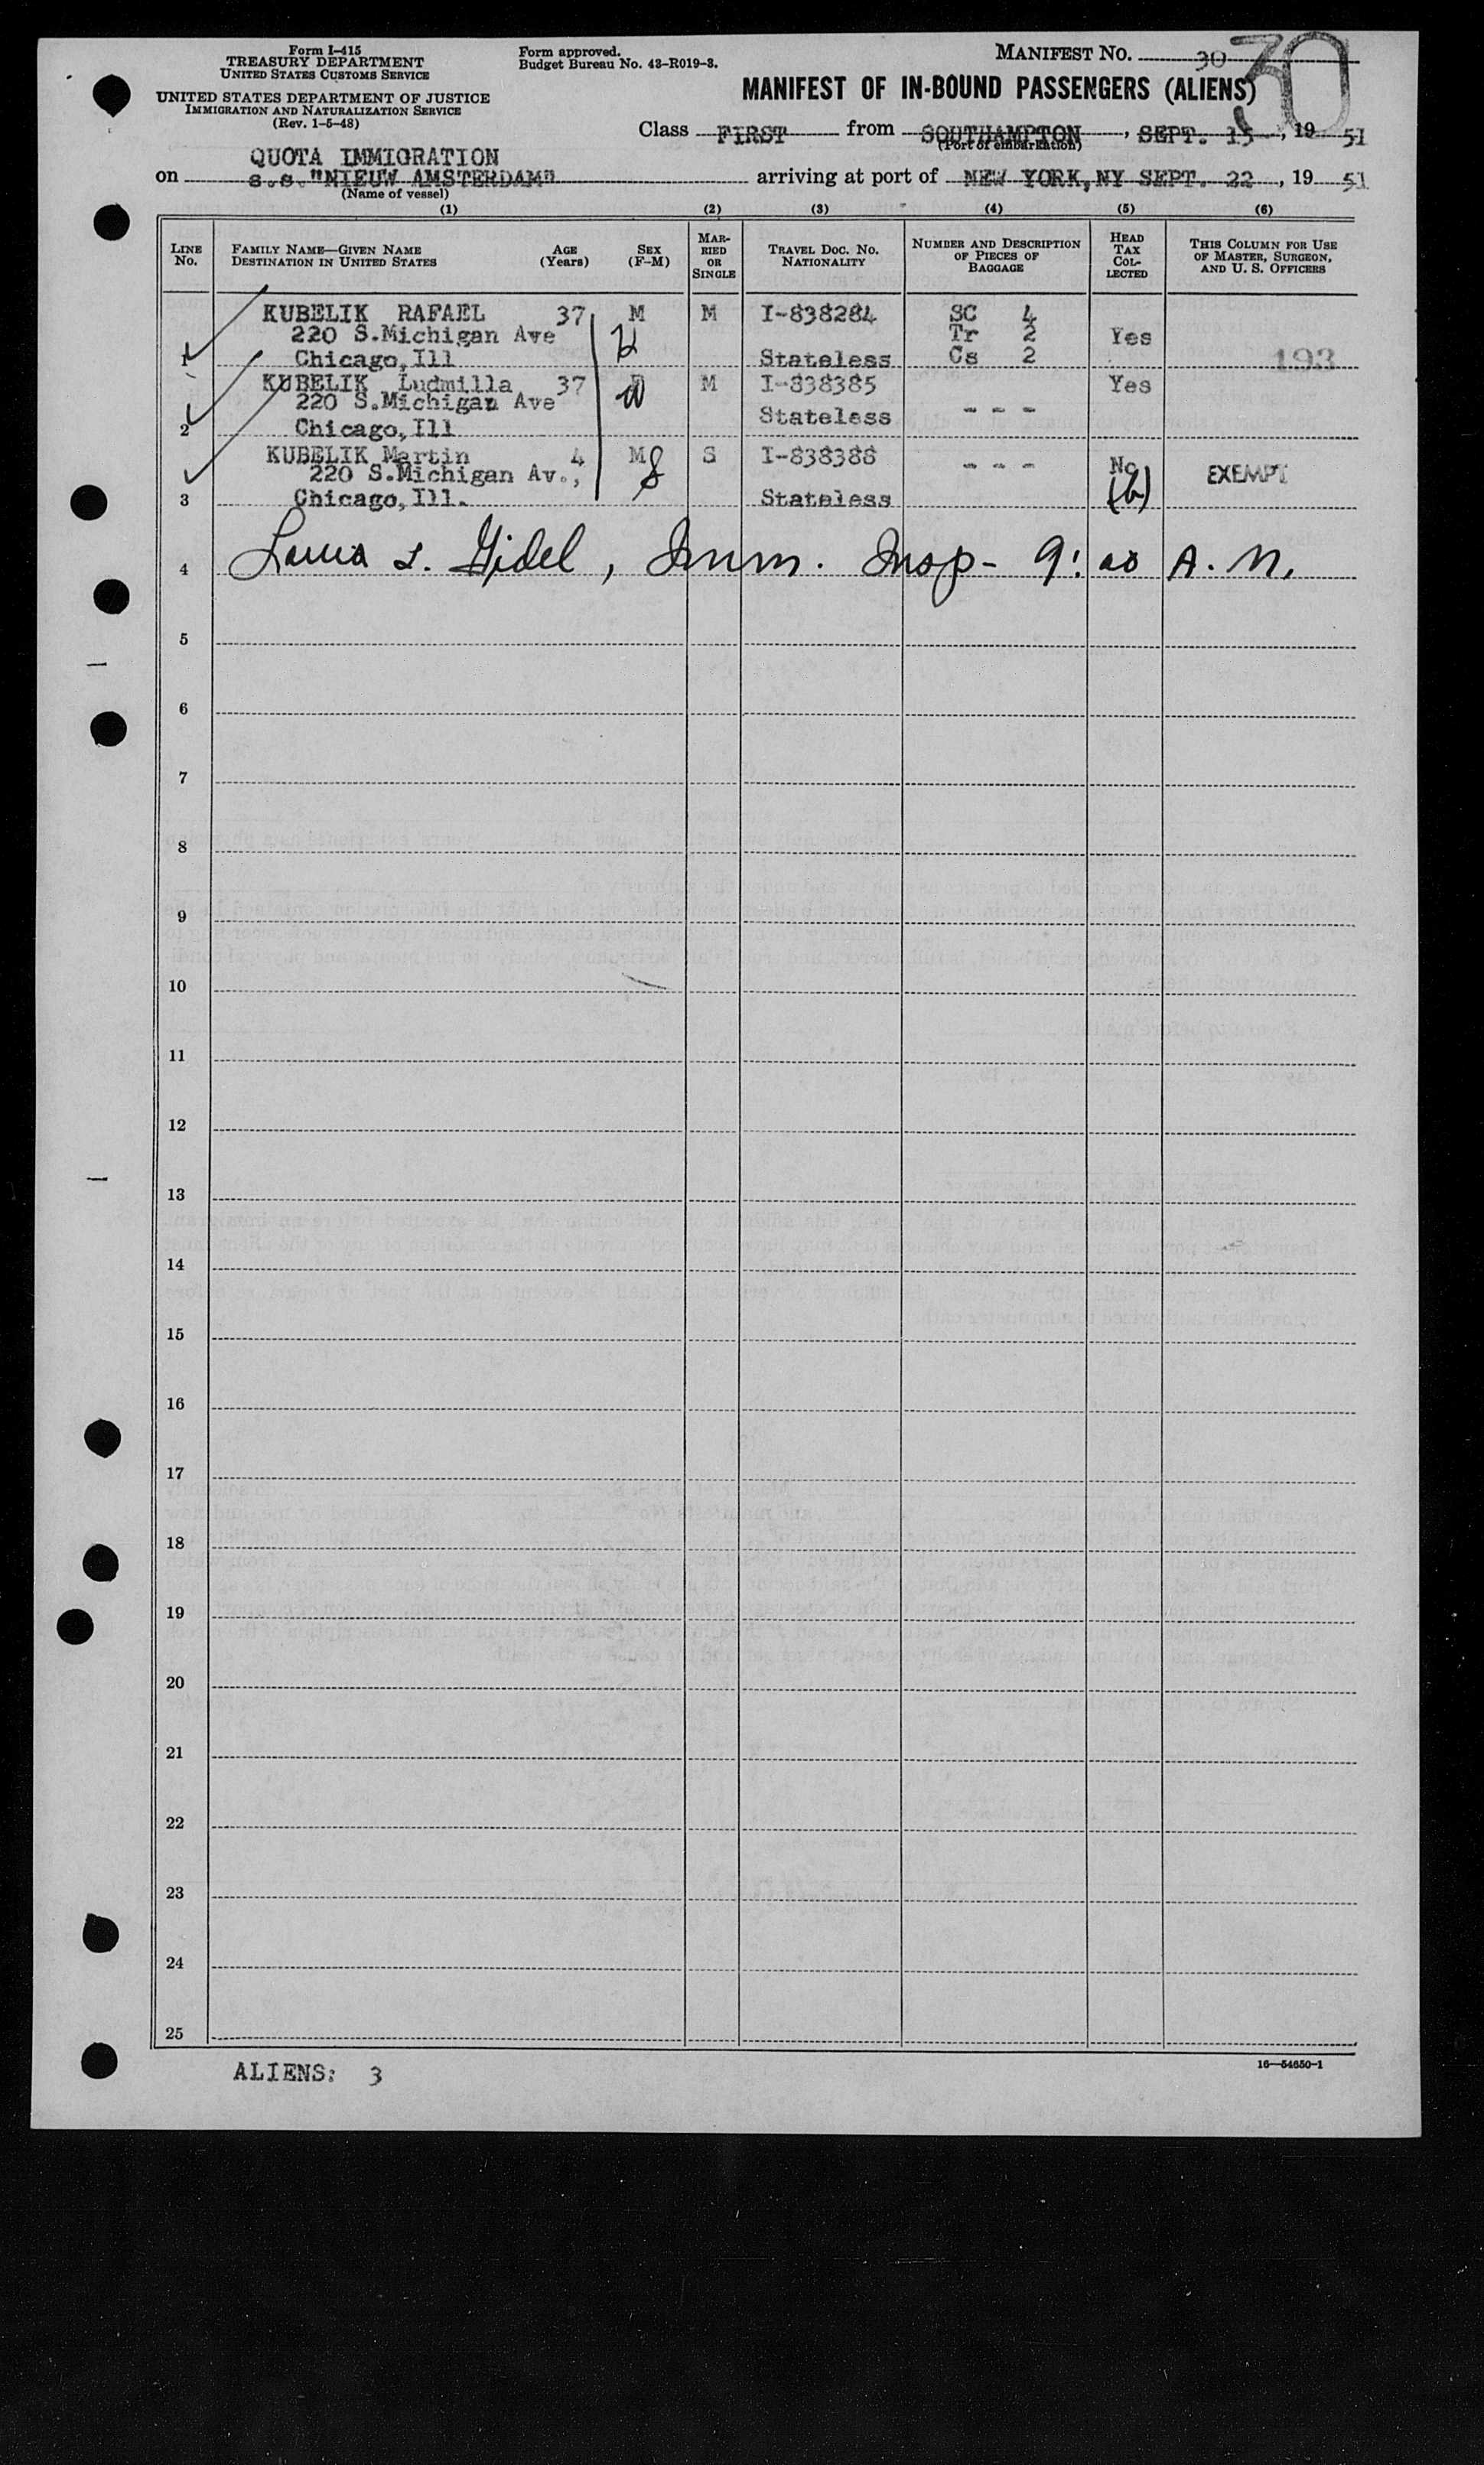 Form I-415
TREASURY DEPARTMENT
UNITED STATES CUSTOMS SERVICE
UNITED STATES DEPARTMENT OF JUSTICE
IMMIGRATION AND NATURALIZATION SERVICE
(Rev. 1-5-48)
Form approved.
Budget Bureau No. 43-R019-3.
MANIFEST No. 30
30
MANIFEST OF IN-BOUND PASSENGERS (ALIENS)
Class FIRST from SOUTHAMPTON, SEPT. 15, 19 51
(Port of embarkation)
QUOTA IMMIGRATION
on s.s. "NIEUW AMSTERDAM" arriving at port of NEW YORK, NY SEPT. 22, 19 51
(Name of vessel)
(1) (2) (3) (4) (5) (6)
LINE No.
FAMILY NAME—GIVEN NAME
DESTINATION IN UNITED STATES
AGE (Years)
SEX (F-M)
MARRIED OR SINGLE
TRAVEL DOC. NO.
NATIONALITY
NUMBER AND DESCRIPTION OF PIECES OF BAGGAGE
HEAD TAX COLLECTED
THIS COLUMN FOR USE OF MASTER, SURGEON, AND U. S. OFFICERS
KUBELIK RAFAEL 37 M M I-838284 SC 4
220 S.Michigan Ave H Tr 2 Yes
1 Chicago,Ill Stateless Cs 2 193
KUBELIK Ludmilla 37 F M I-838385 Yes
220 S.Michigan Ave W Stateless - - -
2 Chicago,Ill
KUBELIK Martin 4 M S I-838388 No
220 S.Michigan Av., - - - EXEMPT
3 Chicago,Ill. Stateless (b)
4 L. Gidel, Imm. Insp- 9:00 A.M.
5
6
7
8
9
10
11
12
13
14
15
16
17
18
19
20
21
22
23
24
25
ALIENS: 3
16—54650-1